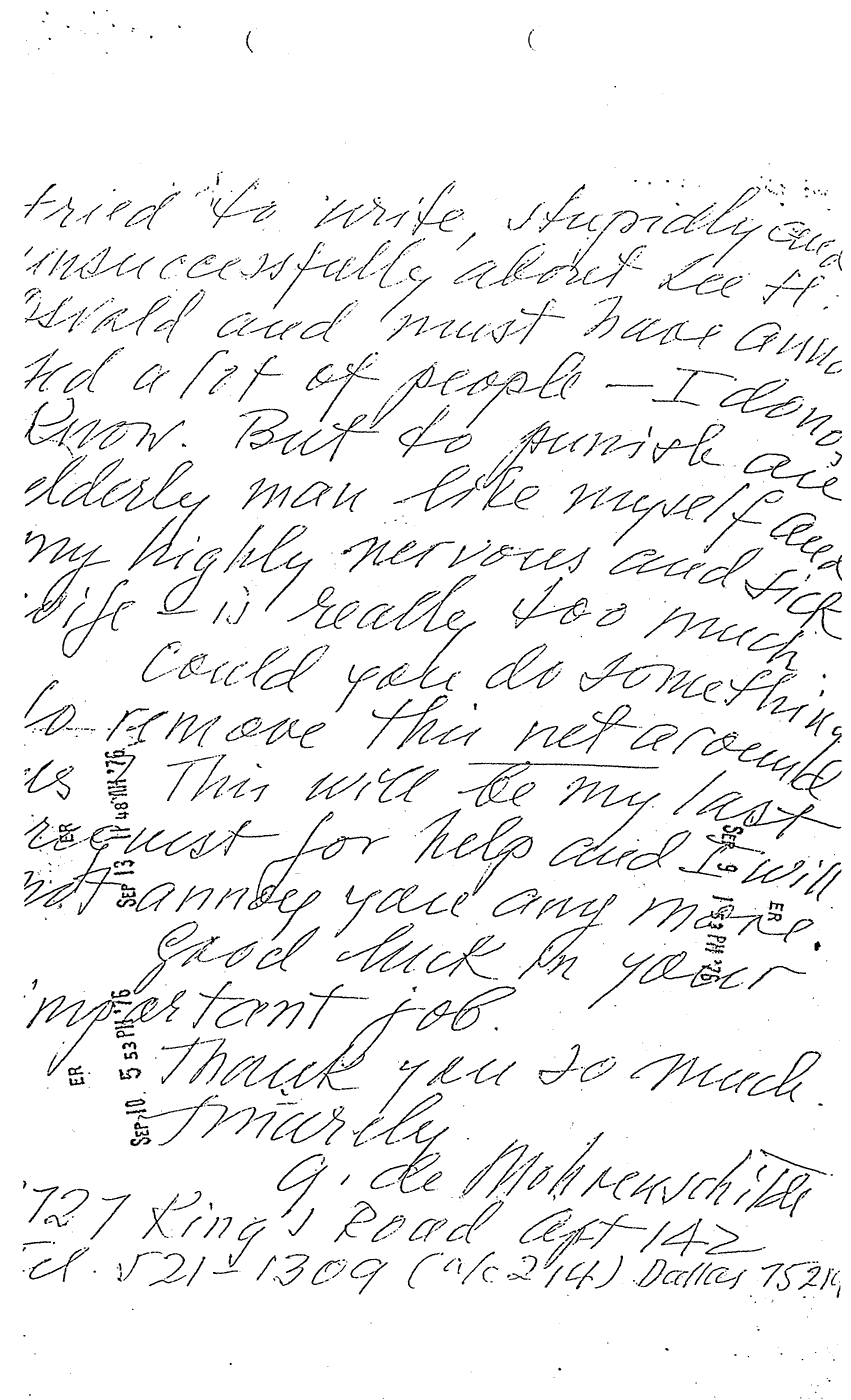 tried to write, stupidly and
unsuccessfully about Lee H.
Oswald and must have anno
yed a lot of people — I do not
know. But to punish an
elderly man like myself and
my highly nervous and sick
wife – is really too much.
Could you do something
to remove this net around
us This will be my last
request for help and I will
not annoy you any more.
Good luck in your
important job.
Thank you so much.
Sincerely
G. de Mohrenschildt
2727 King's Road Apt 142
Tel. 521–1309 (a/c 214) Dallas 75219
SEP 13 11 48 AM '76
ER
SEP 9 1 53 PM '76
ER
SEP 10 5 53 PM '76
ER